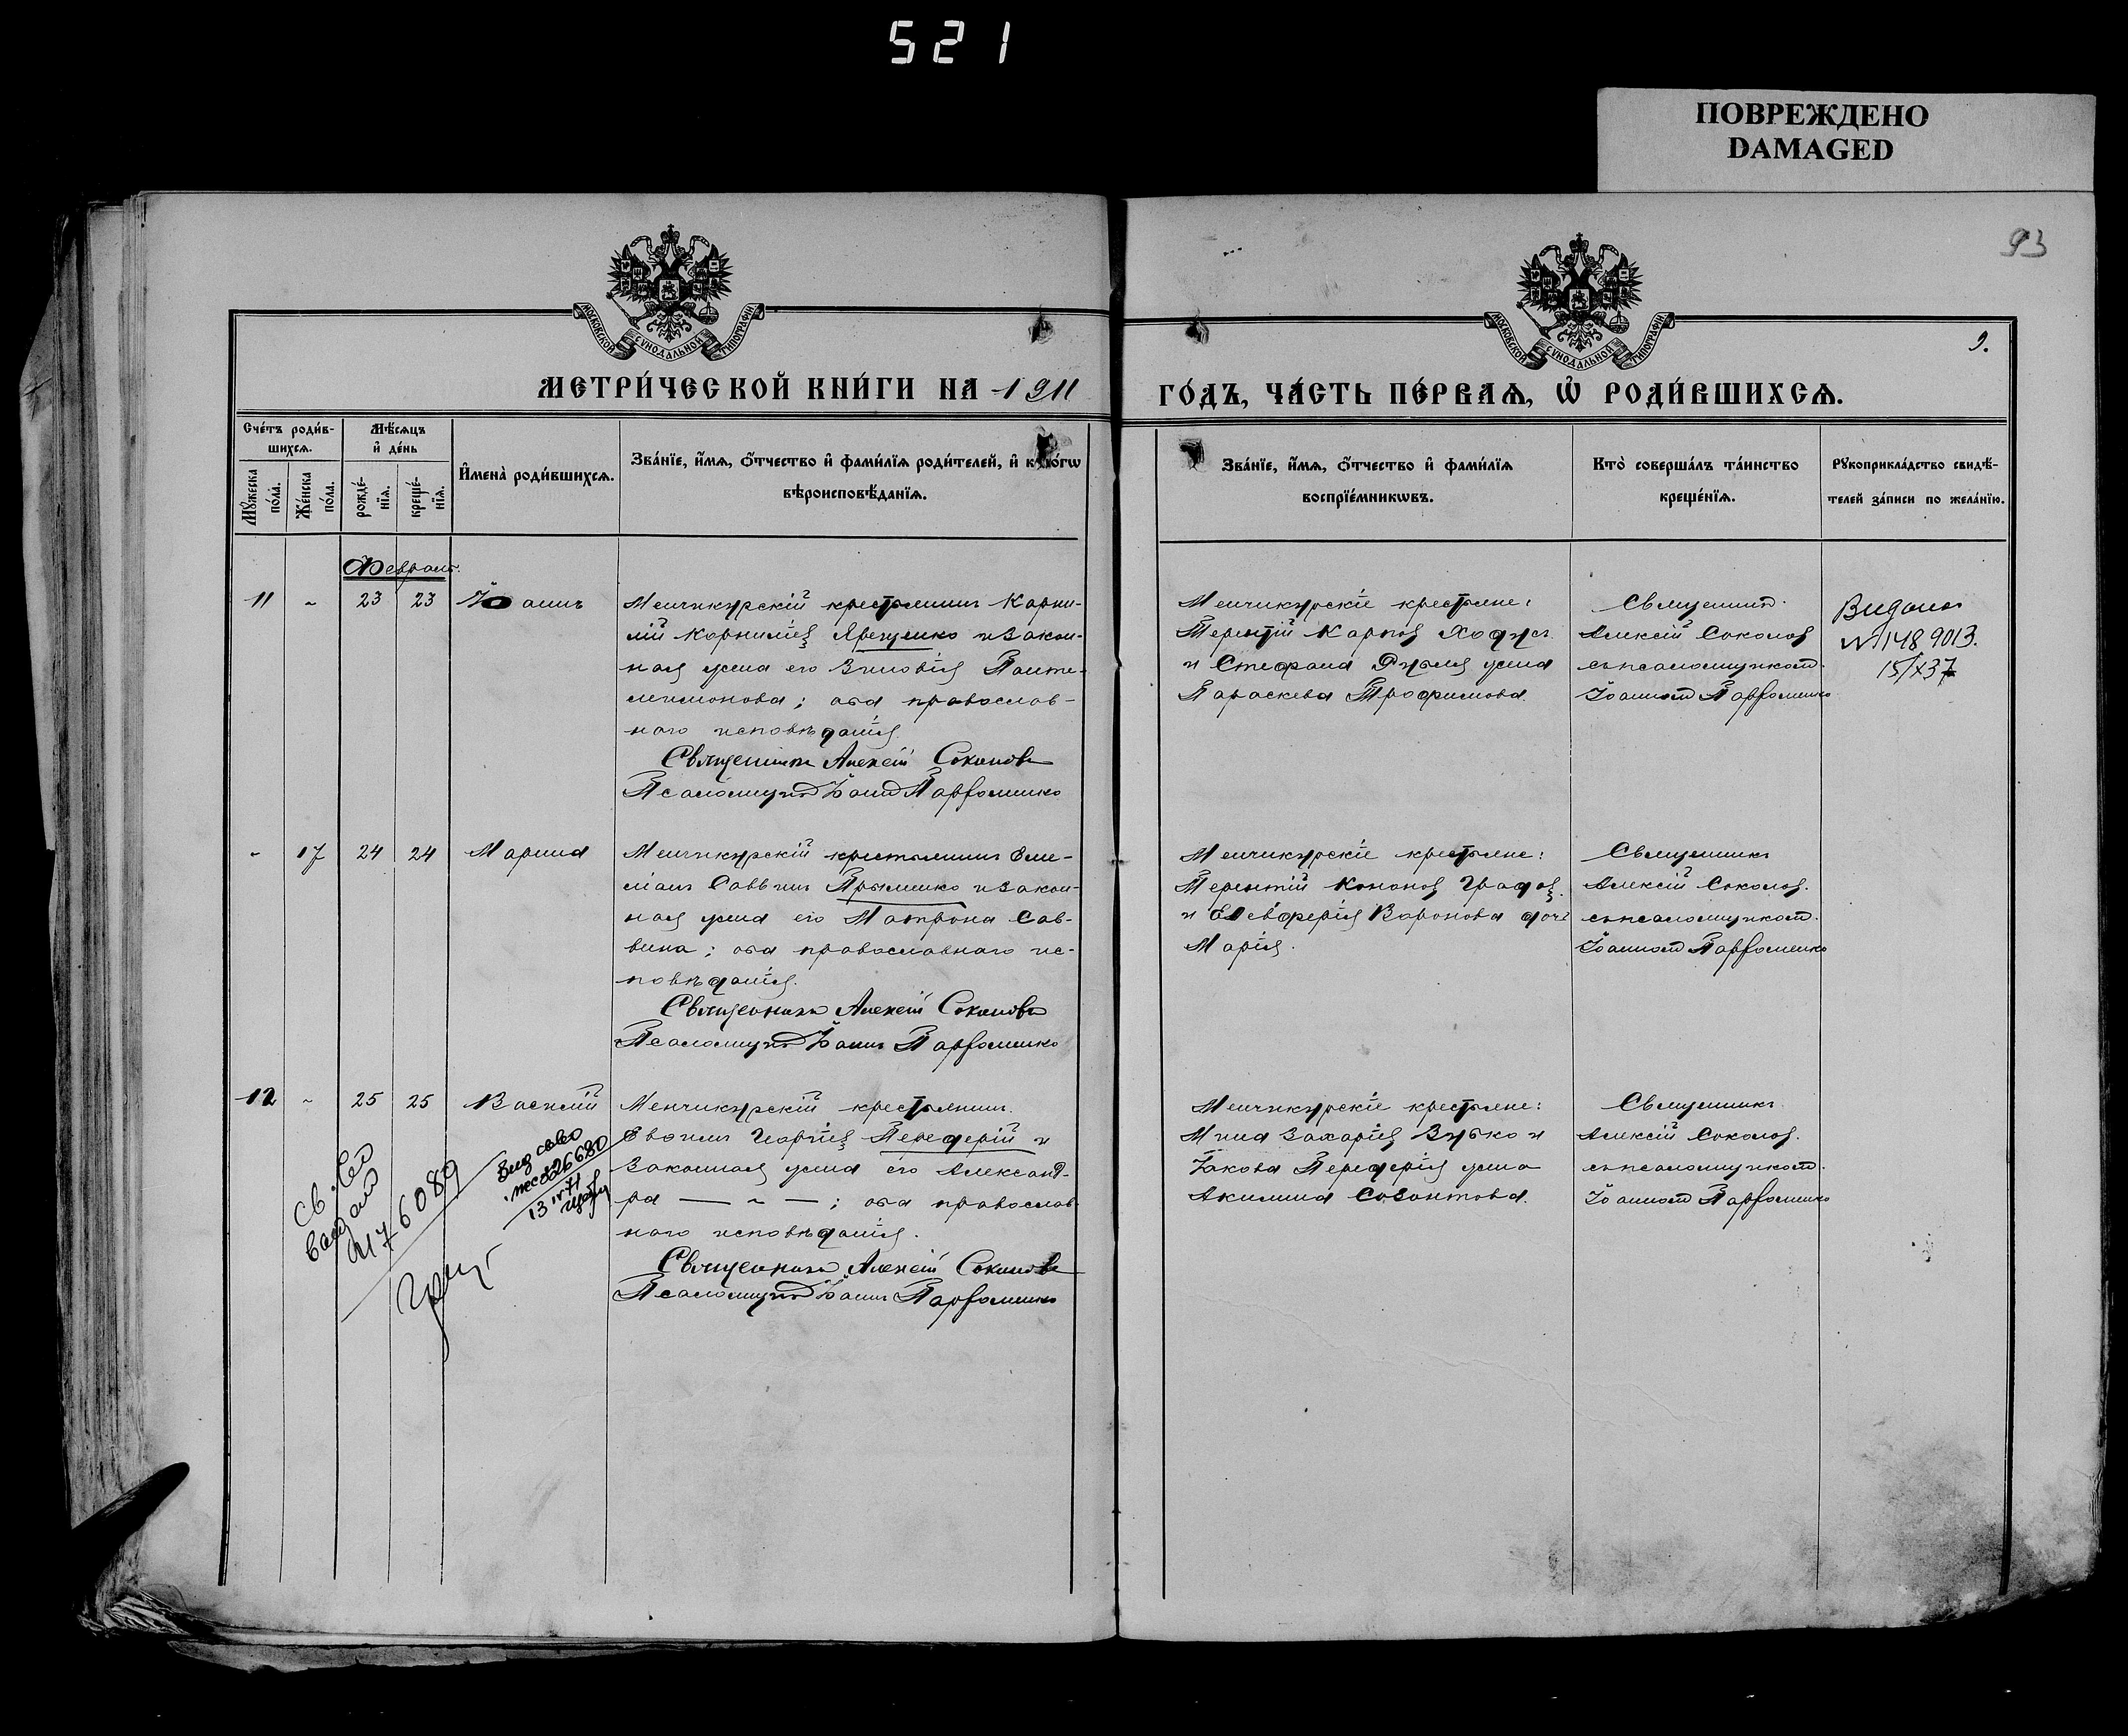 521
ПОВРЕЖДЕНО
DAMAGED
93
9.
МОСКОВСКОЙ СѴНОДАЛЬНОЙ ТИПОГРАФІИ
МОСКОВСКОЙ СѴНОДАЛЬНОЙ ТИПОГРАФІИ
МЕТРИ́ЧЕСКОЙ КНИ́ГИ НА 1911
ГО́ДЪ, ЧА́СТЬ ПЕ́РВАѦ, Ѡ҆ РОДИ́ВШИХСѦ.
Сче́тъ роди́в-
шихсѧ.
Мѣ́сѧцъ
и҆ де́нь
Мꙋ́жеска
по́ла.
Же́нска
по́ла.
рожде́-
нїѧ.
креще́-
нїѧ.
И҆мена̀ роди́вшихсѧ.
Зва́нїе, и҆́мѧ, ѻ҆́тчество и҆ фами́лїѧ роди́телей, и҆
вѣроисповѣ́данїѧ.
Зва́нїе, и҆́мѧ, ѻ҆́тчество и҆ фами́лїѧ
воспрїе́мникѡвъ.
Кто̀ соверша́лъ та́инство
креще́нїѧ.
Рꙋкоприкла́дство свидѣ́-
телей за́писи по жела́нїю.
Февраль.
11 „ 23 23 Іоаннъ
Менчикурскій крестьянинъ Корни-
лій Корниліевъ Яреценко и закон-
ная жена его Зиновія Панте-
леимонова; оба православ-
наго исповѣданія.
Священникъ Алексій Соколовъ
Псаломщикъ Іоаннъ Парфоменко
Менчикурскіе крестьяне:
Терентій Карповъ Ходусъ
и Стефана жена
Параскева Трофимова.
Священникъ
Алексій Соколовъ
съ псаломщикомъ
Іоанномъ Парфоменко
Видано
№ 1489013.
15/X 37
„ 17 24 24 Марина
Менчикурскій крестьянинъ Еме-
ліанъ Саввинъ Ярыменко и закон-
ная жена его Матрона Сав-
вина; оба православнаго ис-
повѣданія.
Священникъ Алексій Соколовъ
Псаломщикъ Іоаннъ Парфоменко
Менчикурскіе крестьяне:
Терентій Кононовъ
и Елевферія Воронова дочь
Марія.
Священникъ
Алексій Соколовъ.
съ псаломщикомъ
Іоанномъ Парфоменко
12 „ 25 25 Василій
Менчикурскій крестьянинъ
Георгіевъ Передерій и
законная жена его Александ-
ра — „ — ; оба православ-
наго исповѣданія.
Священникъ Алексій Соколовъ
Псаломщикъ Іоаннъ Парфоменко
Менчикурскіе крестьяне:
Мина Захаріевъ Зубко и
Іакова Передерія жена
Акилина Созонтова.
Священникъ
Алексій Соколовъ.
съ псаломщикомъ
Іоанномъ Парфоменко